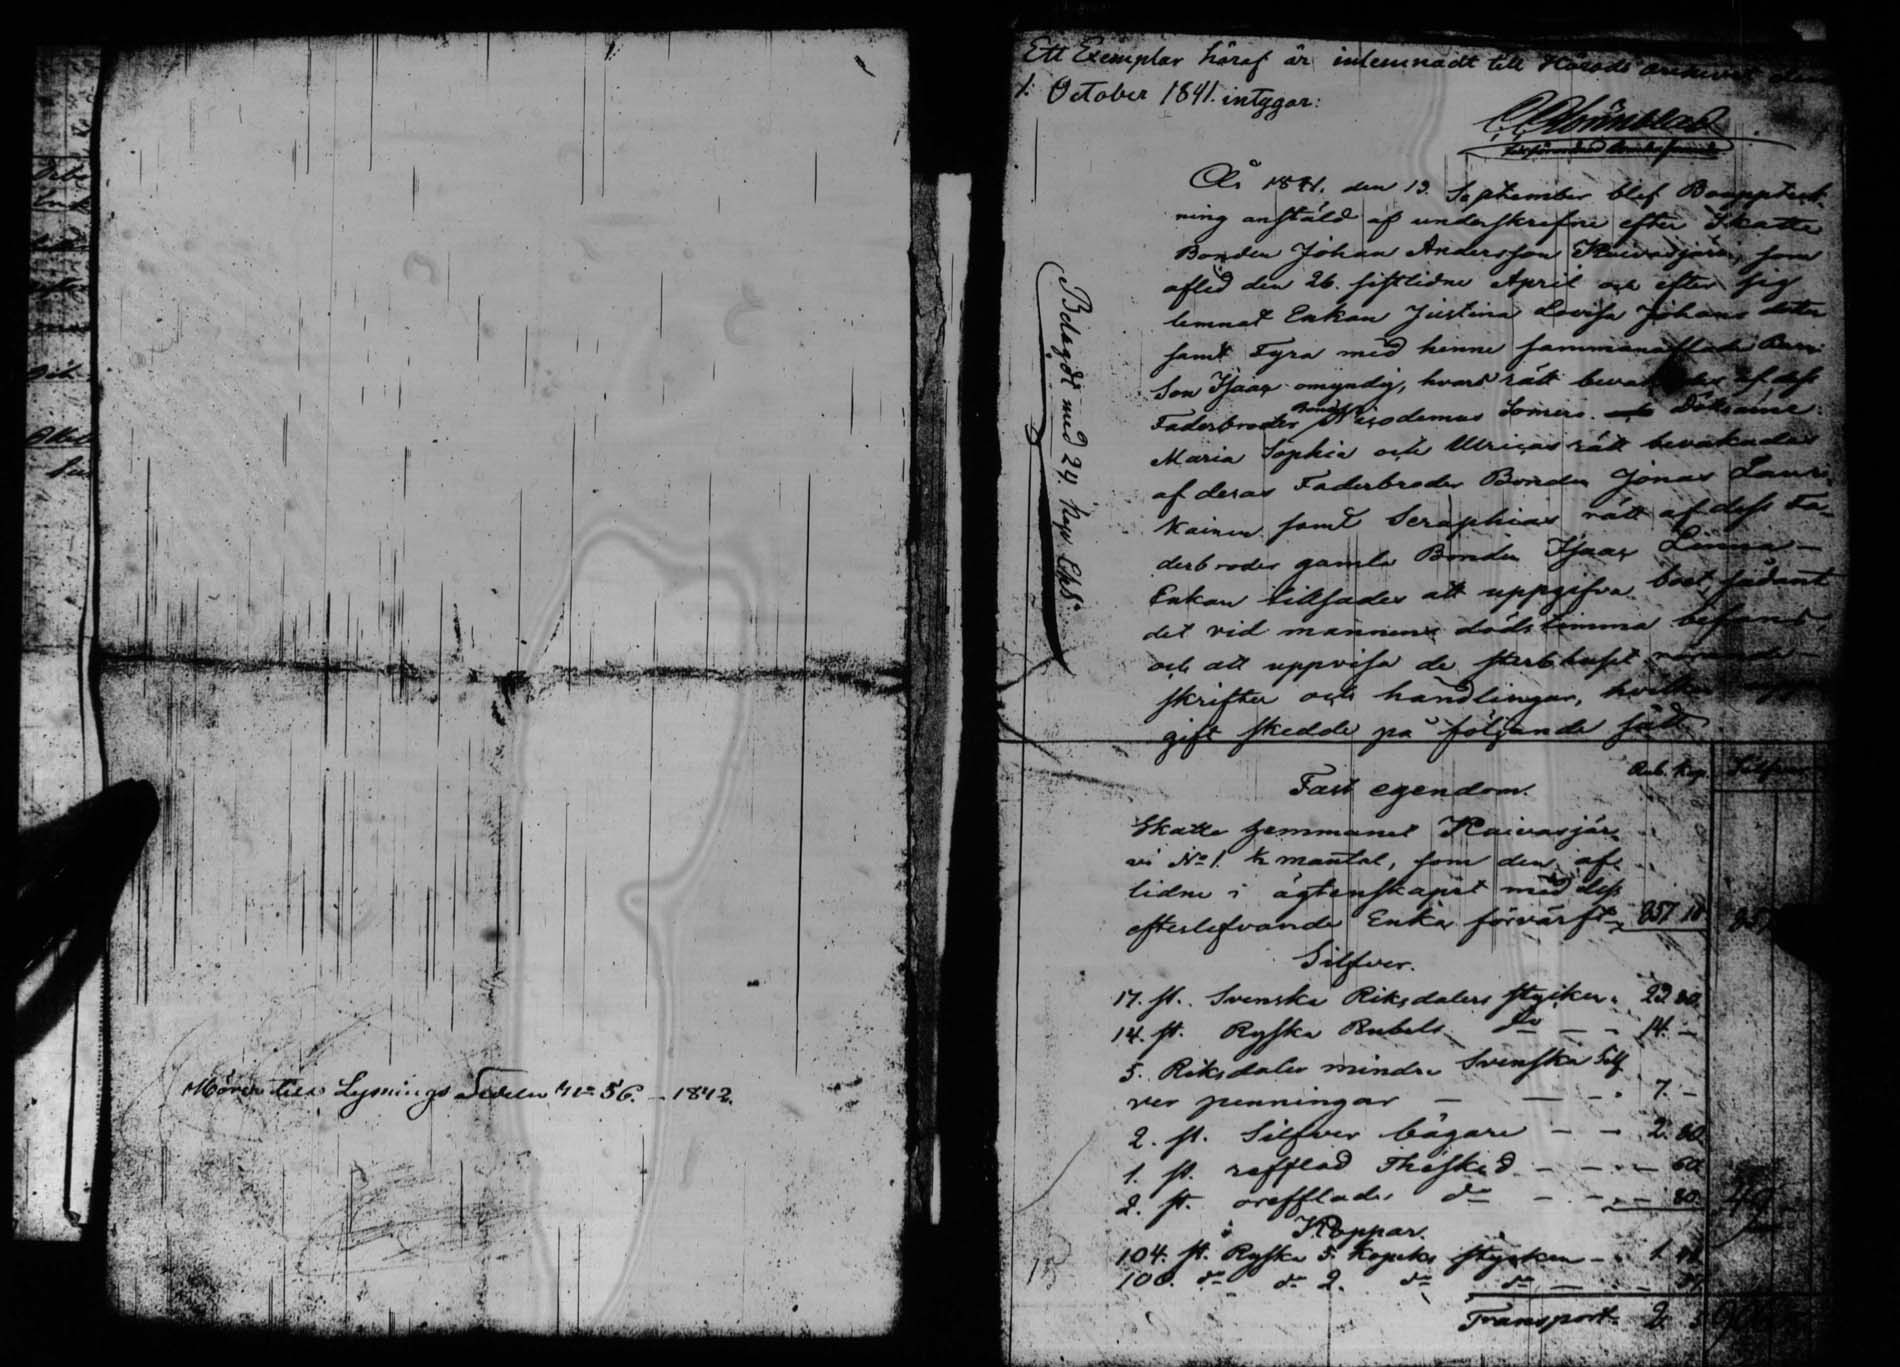 Hörer till Lysnings Sedeln No 56. – 1842.
Ett Exemplar häraf är inlemnadt till Härads archivet den
1. October 1841. intygar:
Belagdt med 24. Kop. Ch. S.
År 1841. den 13. September blef Bouppteck-
ning anstäld af underskrefne efter Skatte
Bonden Johan Andersson Kaivasjärvi, som
afled den 26. sistlidne April och efter sig
lemnat Enkan Justina Lovisa Johans dotter
samt Fyra med henne sammanaflade Barn:
Son Isaac omyndig, hvars rätt bevakades af dess
Faderbroder Bonden Nicodemus Someri. Döttrarne:
Maria Sophia och Ulricas rätt bevakades
af deras Faderbroder Bonden Jonas Lauri-
kainen samt Seraphias rätt af dess Fa-
derbroder gamla Bonden Isaac Linna –
Enkan tillsades att uppgifva boet sådant
det vid mannens dödstimma befans
och att uppvisa de sterbhuset rörande
skrifter och handlingar, hvilken
gift skedde på följande sätt
Rub. Kop. Silfver
Fast egendom.
Skatte hemmanet Kaivasjär-
vi No 1. ½ mantal, som den af-
lidne i ägtenskapet med dess
efterlefvande Enka förvärft 857 18
Silfver.
17. st. Svenska Riksdalers stycken 22 80.
14. st. Ryska Rubels do – – 14. –
5. Riksdaler mindre Svenska Silf
ver penningar – – – 7. –
2. st. Silfver bägare – – 2. 80
1. st. refflad Thesked – – – 60.
2. st. orefflade do – – – 80.
Koppar.
104. st. Ryska 5. Kopeks stycken – 1.
100. do do 2. do do –
Transport 2.